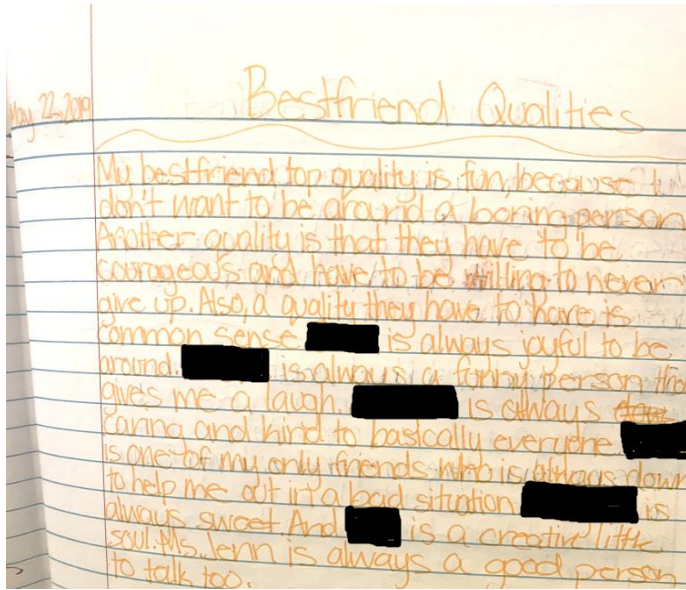 May 22, 2019
Bestfriend Qualities
My bestfriend top quality is fun, because I
don't want to be around a boring person
Another quality is that they have to be
courageous and have to be willing to never
give up. Also, a quality they have to have is
common sense. is always joyful to be
around. is always a funny person tha
gives me a laugh. is always
caring and kind to basically everyone.
is one of my only friends who is always down
to help me out in a bad sitation. is
always sweet And is a creative little
soul. Ms. Jenn is always a good person
to talk too.